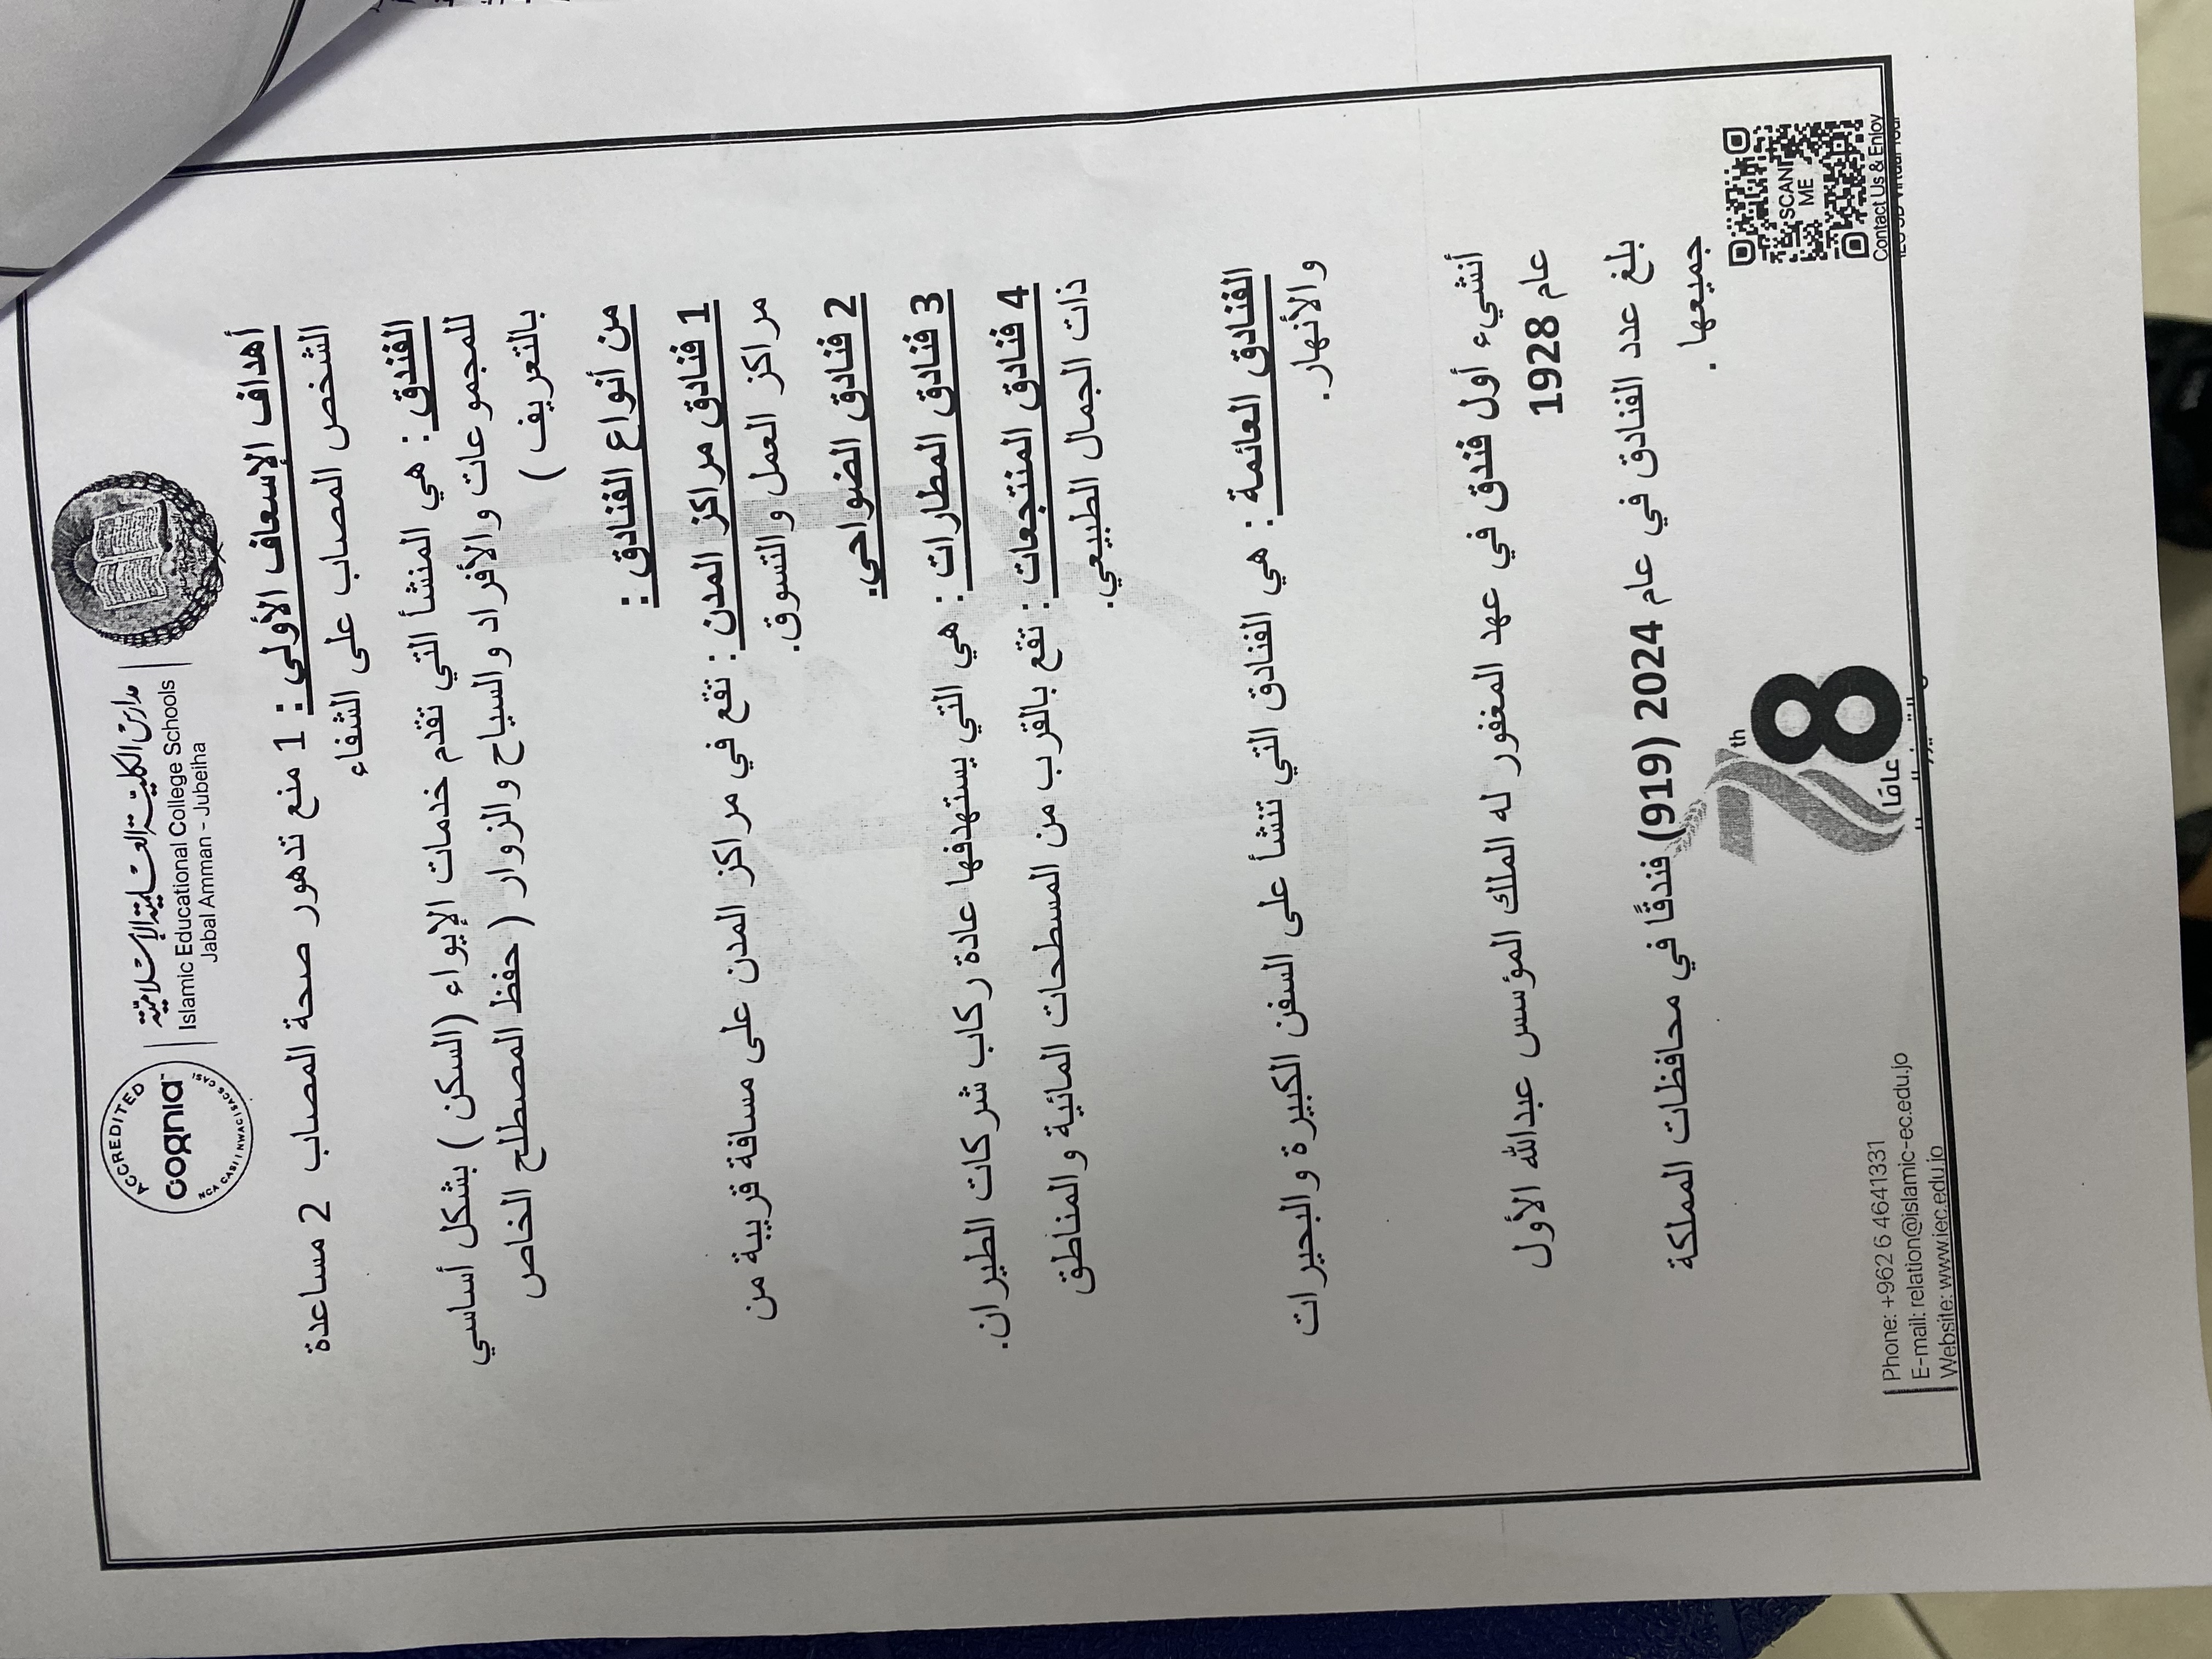 مدارس الكلية العلمية الإسلامية
Islamic Educational College Schools
Jabal Amman - Jubeiha
ACCREDITED
cognia
NCA CASI I NWAC I SACS CASI
أهداف الإسعاف الأولي : 1 منع تدهور صحة المصاب 2 مساعدة
الشخص المصاب على الشفاء
الفندق : هي المنشأ التي تقدم خدمات الإيواء (السكن ) بشكل أساسي
للمجموعات والأفراد والسياح والزوار ( حفظ المصطلح الخاص
بالتعريف )
من أنواع الفنادق :
1 فنادق مراكز المدن : تقع في مراكز المدن على مسافة قريبة من
مراكز العمل والتسوق.
2 فنادق الضواحي.
3 فنادق المطارات : هي التي يستهدفها عادة ركاب شركات الطيران.
4 فنادق المنتجعات : تقع بالقرب من المسطحات المائية والمناطق
ذات الجمال الطبيعي.
الفنادق العائمة : هي الفنادق التي تنشأ على السفن الكبيرة والبحيرات
والأنهار.
أنشيء أول فندق في عهد المغفور له الملك المؤسس عبدالله الأول
عام 1928
بلغ عدد الفنادق في عام 2024 (919) فندقًا في محافظات المملكة
جميعها .
SCAN
ME
Contact Us & Enjoy
78 th
عامًا
Phone: +962 6 4641331
E-mail: relation@islamic-ec.edu.jo
Website: www.iec.edu.jo